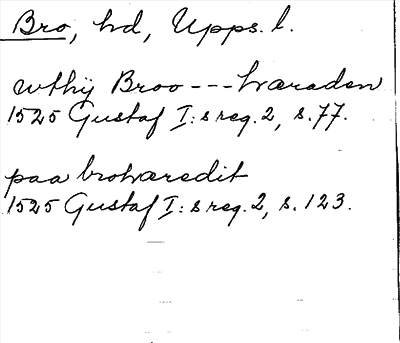 Bro, hd, Upps. l.
wthij Broo --- hæraden
1525 Gustaf I: s reg. 2, s. 77.
paa brohæredit
1525 Gustaf I: s reg. 2, s. 123.